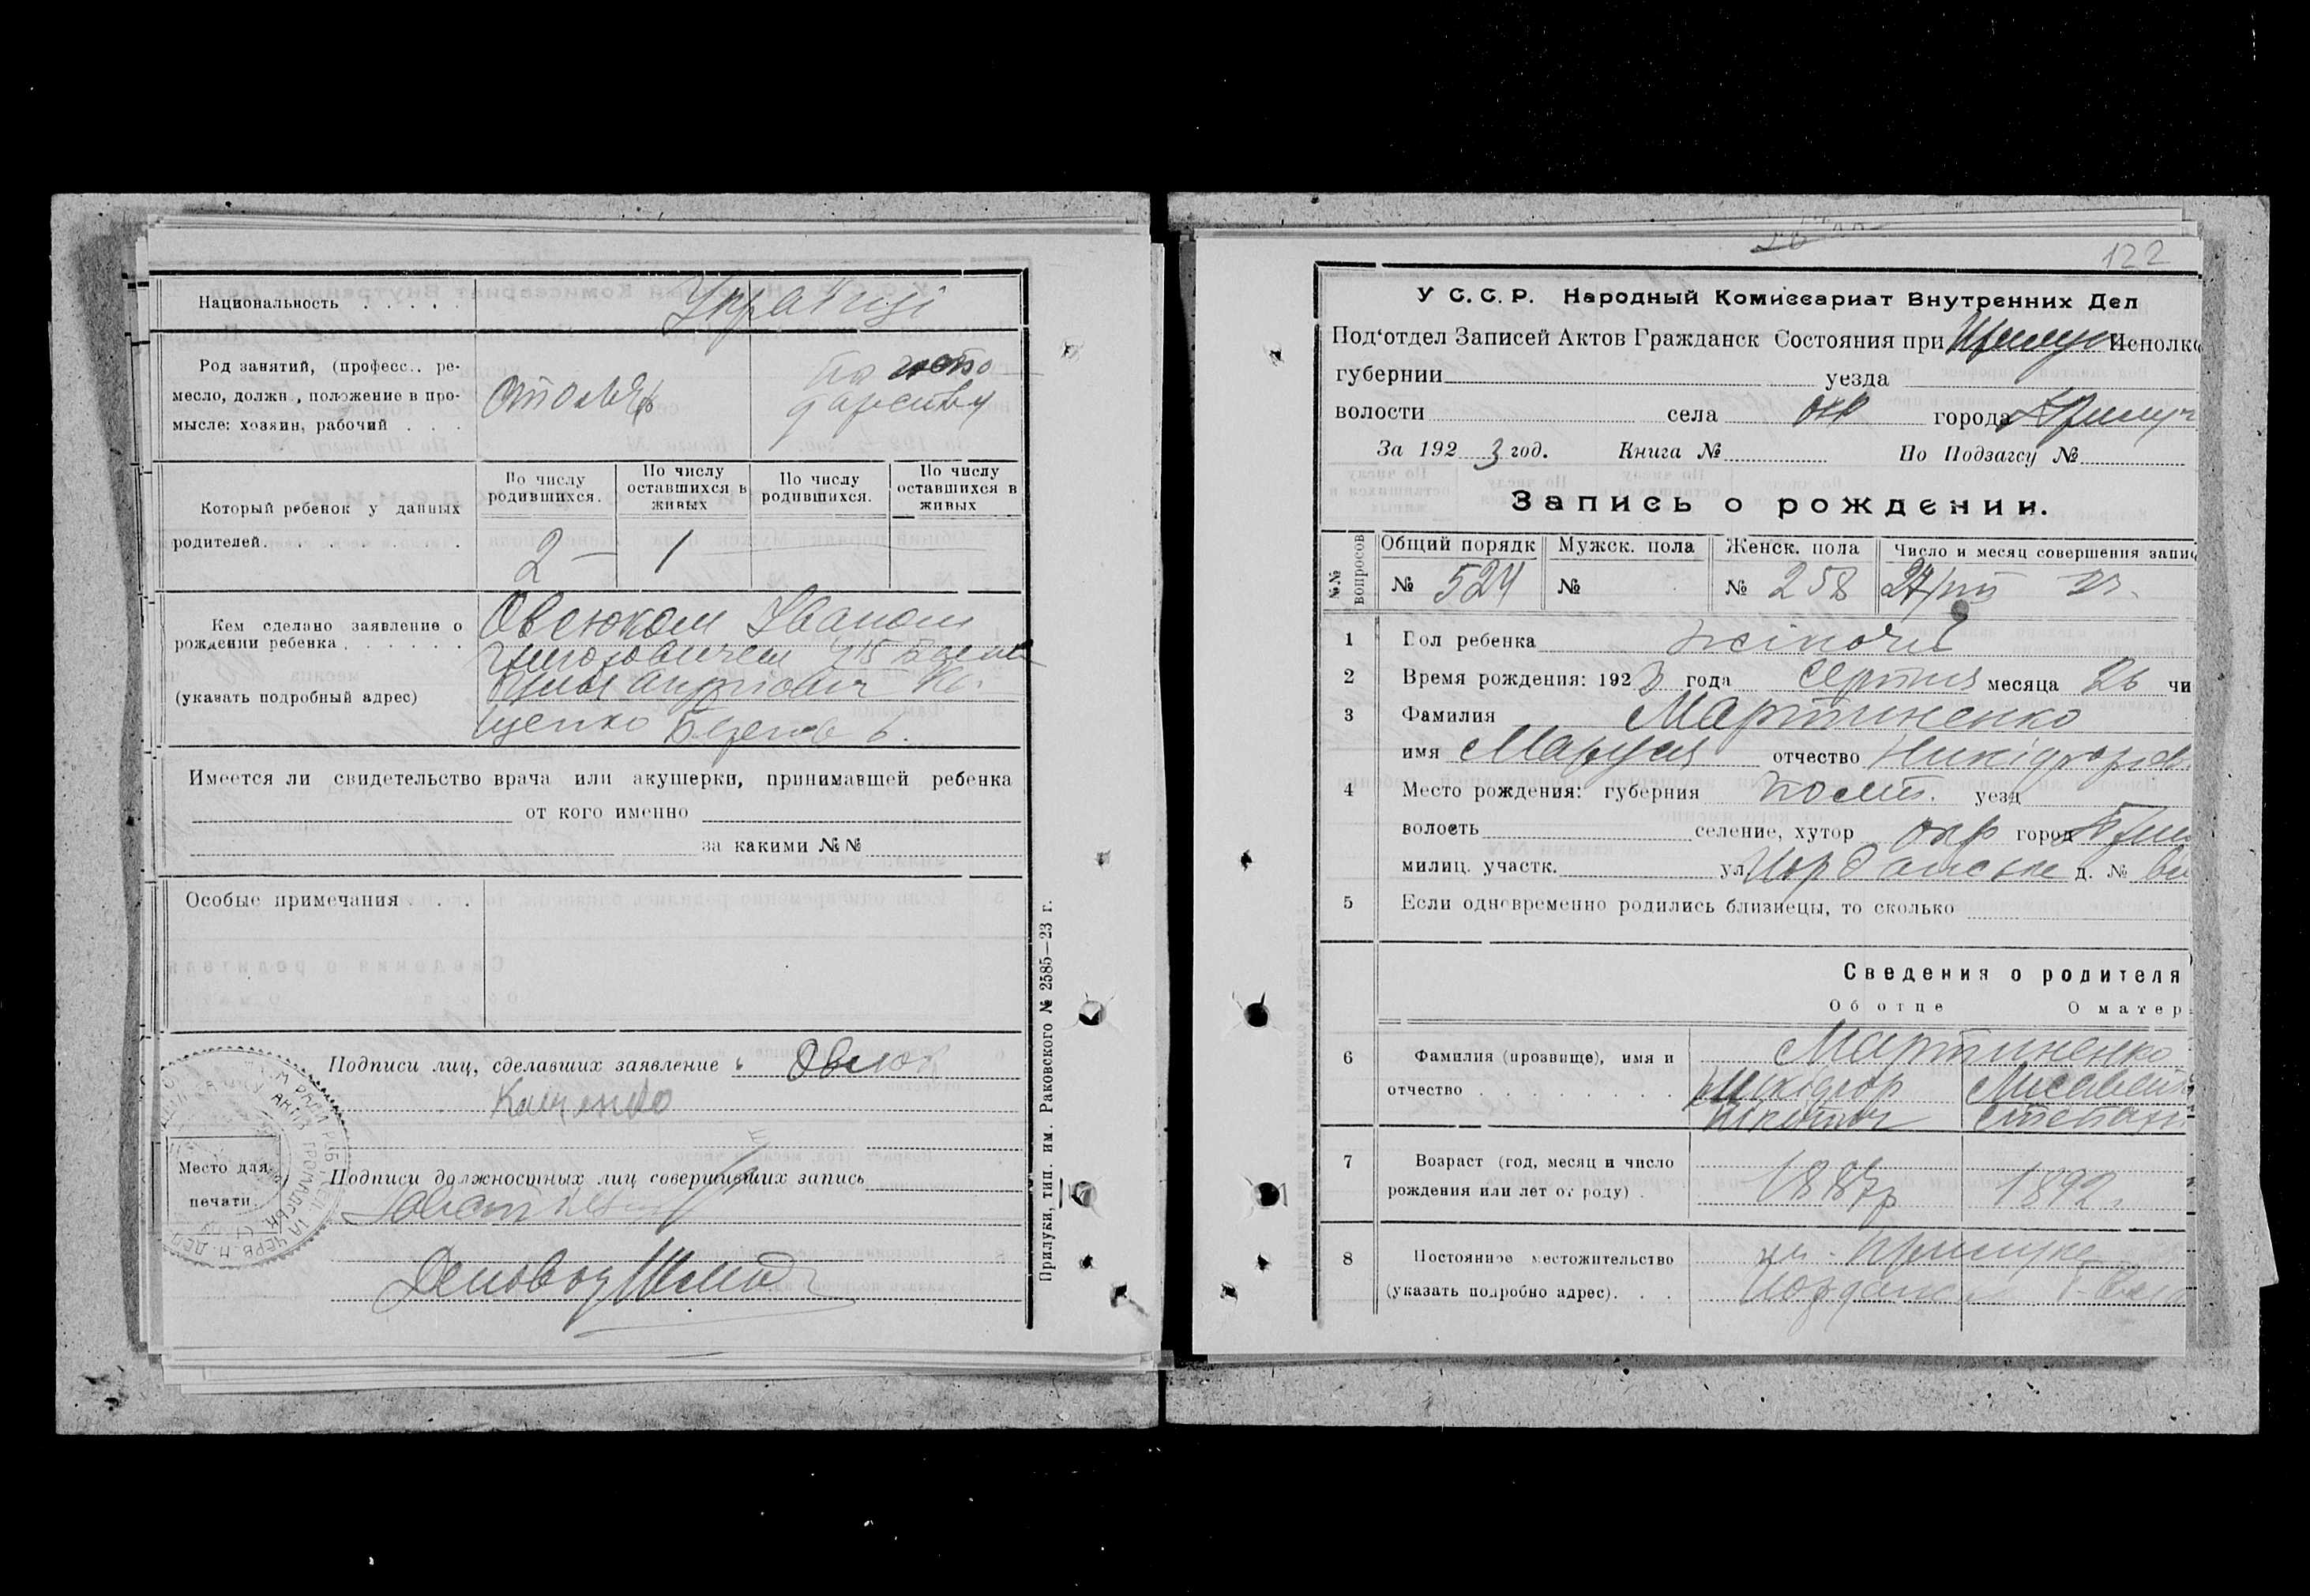 Национальность
Українці
Род занятий, (професс., ре-
месло, должн., положение в про-
мысле: хозяин, рабочий
столяр
по госпо
дарству
Который ребенок у данных
родителей
По числу родившихся.
По числу оставшихся в живых
По числу родившихся.
По числу оставшихся в живых
2 —
1
Кем сделано заявление о
рождении ребенка
(указать подробный адрес)
Овсюком Іваном
Имеется ли свидетельство врача или акушерки, принимавшей ребенка
от кого именно
за какими №№
Особые примечания
Подписи лиц, сделавших заявление
Овсюк
Кащенко
Место для
печати
Подписи должностных лиц совершивших запись
Діловод
Прилуки, тип. им. Раковского № 2585—23 г.
122
У С. С. Р. Народный Комиссариат Внутренних Дел
Под'отдел Записей Актов Гражданск Состояния при Прилуц Исполк
губернии уезда
волости села окр города Прилуч
За 1923 год. Книга № По Подзагсу №
Запись о рождении.
№№ вопросов
Общий порядк
№ 524
Мужск. пола
№
Женск. пола
№ 258
Число и месяц совершения запис
27/VIII 23.
1 Пол ребенка жіночий
2 Время рождения: 1923 года Серпня месяца 26 чи
3 Фамилия Мартиненко
имя Маруся отчество Никіфоров
4 Место рождения: губерния Полт. уезд
волость селение, хутор окр город Прил
милиц. участк. ул Иорданська д. №
5 Если одновременно родились близнецы, то сколько
Сведения о родителя
Об отце О матер
6 Фамилия (прозвище), имя и
отчество
Мартиненко
Никіфор
Лисавет
Степан
7 Возраст (год, месяц и число
рождения или лет от роду)
1887р
1892
8 Постоянное местожительство
(указать подробно адрес)
м. Прилуке
Иорданська